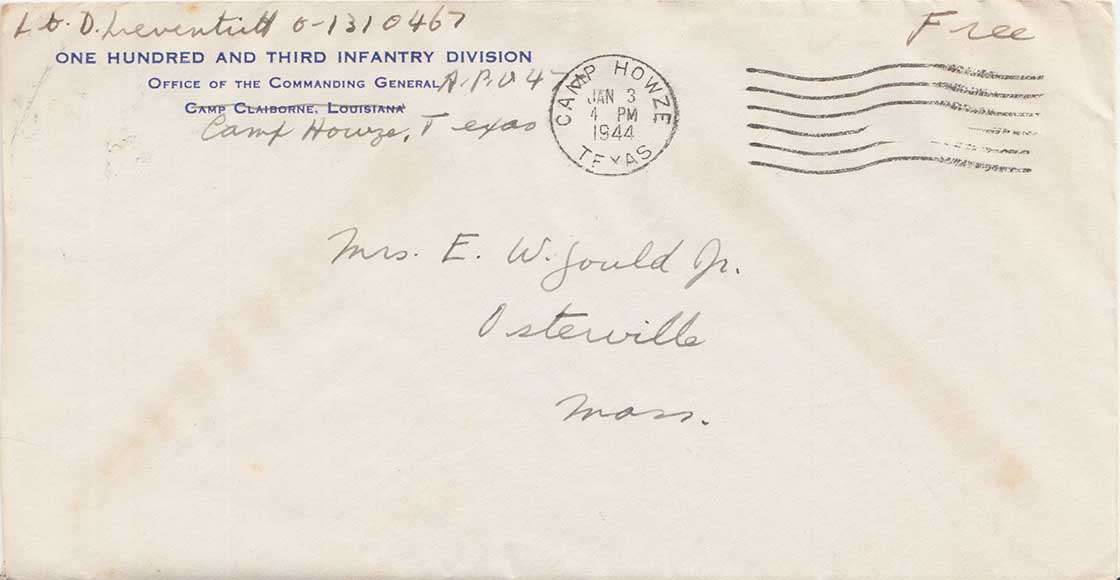 Lt. D. Leventritt O-1310467
Free
ONE HUNDRED AND THIRD INFANTRY DIVISION
OFFICE OF THE COMMANDING GENERAL A.P.O 47
CAMP CLAIBORNE, LOUISIANA
Camp Howze, Texas
CAMP HOWZE
JAN 3
4 PM
1944
TEXAS
Mrs. E. W. Gould Jr.
Osterville
Mass.